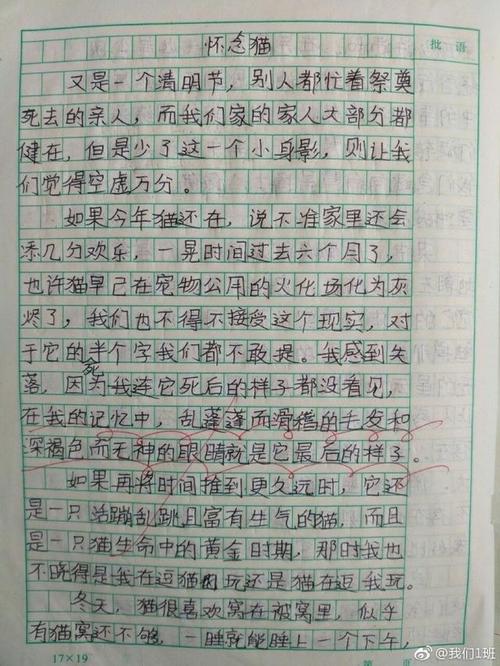 怀念猫
批语
又是一个清明节，别人都忙着祭奠
死去的亲人，而我们家的家人大部分都
健在，但是少了这一个小身影，则让我
们觉得空虚万分。
如果今年猫还在，说不准家里还会
添几分欢乐，一晃时间过去六个月了，
也许猫早已在宠物公用的火化场化为灰
烬了，我们也不得不接受这个现实，对
于它的死半个字我们都不敢提。我感到失
落，因为我连它死后的样子都没看见，
在我的记忆中，乱蓬蓬而滑稽的毛发和
深褐色而无神的眼睛就是它最后的样子。
如果再将时间推到更久远时，它还
是一只活蹦乱跳且富有生气的猫，而且
是一只猫生命中的黄金时期，那时我也
不晓得是我在逗猫玩还是猫在逗我玩。
冬天，猫很喜欢窝在被窝里，似乎
有猫窝还不够，一睡就能睡上一个下午，
17×19
@我们1班